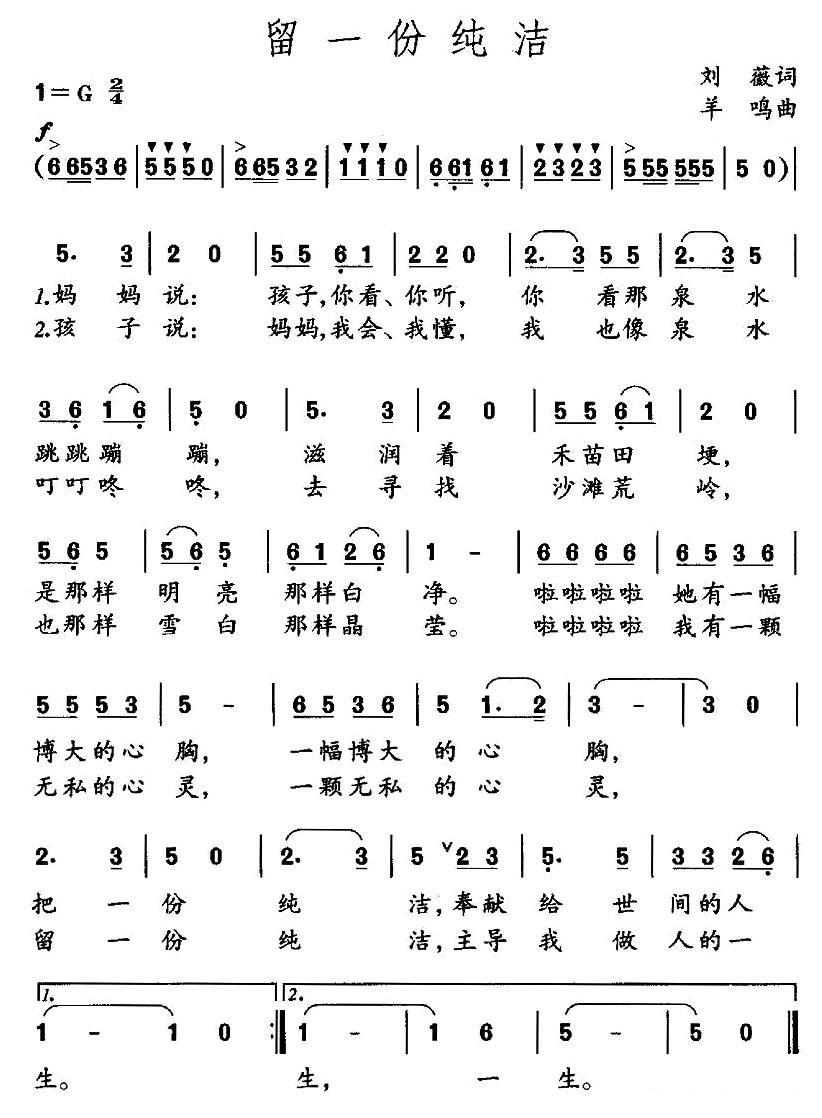 留一份纯洁
刘 薇词
1=G 2/4
羊 鸣曲
f
(66536|5550|66532|1110|66161|2323|555555|50)|
5. 3|2 0|5 5 6 1|2 2 0|2. 3 5 5|2. 3 5|
1.妈 妈 说: 孩子,你看、你听, 你 看那 泉 水
2.孩 子 说: 妈妈,我会、我懂, 我 也像 泉 水
3 6 1 6|5 0|5. 3|2 0|5 5 6 1|2 0|
跳跳蹦 蹦, 滋 润 着 禾苗田 埂,
叮叮咚 咚, 去 寻 找 沙滩荒 岭,
5 6 5|5 6 5|6 1 2 6|1 -|6 6 6 6|6 5 3 6|
是那样 明 亮 那样白 净。 啦啦啦啦 她有一幅
也那样 雪 白 那样晶 莹。 啦啦啦啦 我有一颗
5 5 5 3|5 -|6 5 3 6|5 1. 2|3 -|3 0|
博大的心 胸, 一幅博大 的 心 胸,
无私的心 灵, 一颗无私 的 心 灵,
2. 3|5 0|2. 3|5 ∨ 2 3|5. 5|3 3 2 6|
把 一 份 纯 洁,奉献 给 世 间的人
留 一 份 纯 洁,主导 我 做 人的一
1. 2.
1 -|1 0:‖1 -|1 6|5 -|5 0‖
生。 生, 一 生。